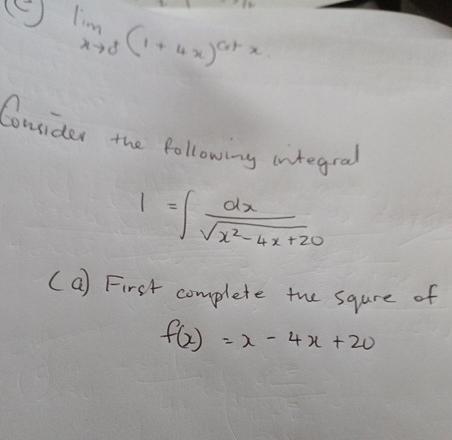 (c) lim x→8 (1 + 4x)^cot x.
Consider the following integral
I = ∫ dx / √x² - 4x + 20
(a) First complete the squre of
f(x) = x - 4x + 20